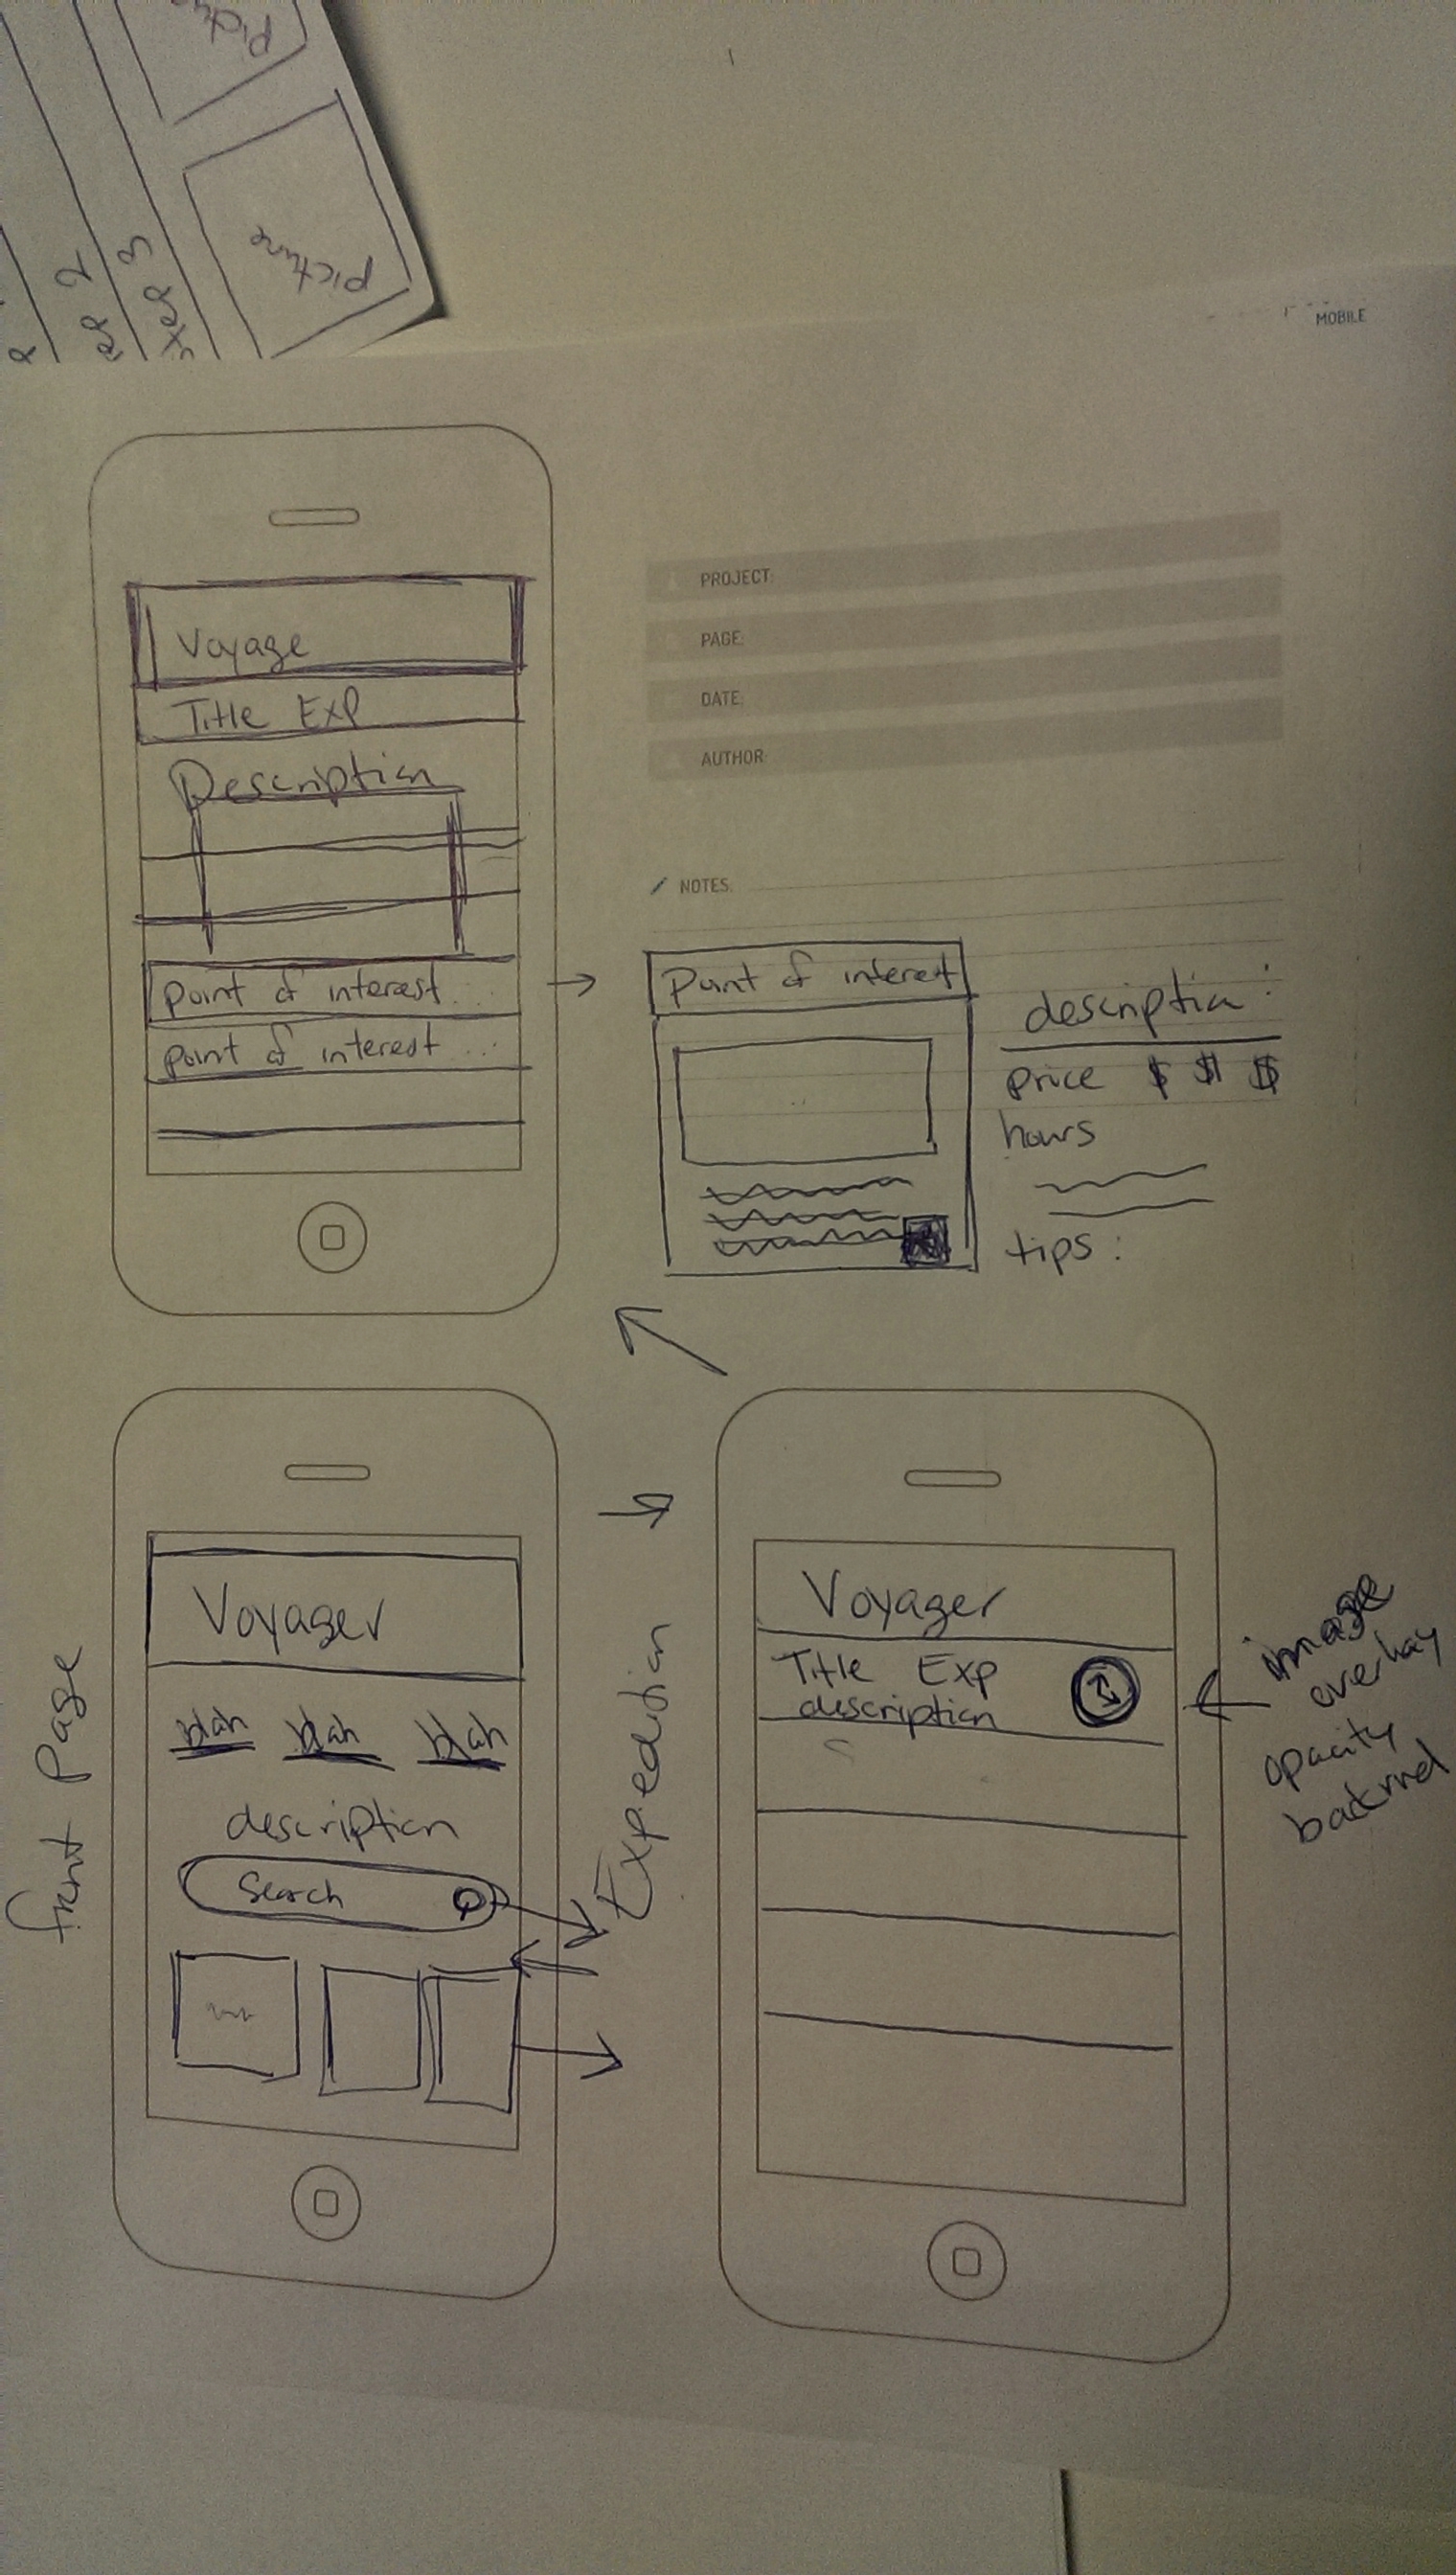 Picture
picture
2
3
MOBILE
Voyage
Title Exp
Description
point of interest...
point of interest...
PROJECT:
PAGE:
DATE:
AUTHOR:
NOTES:
Point of interest
description:
price $ $ $
hours
tips:
front page
Voyager
blah blah blah
description
Search
Expedition
Voyager
Title Exp
description
image
overlay
opacity